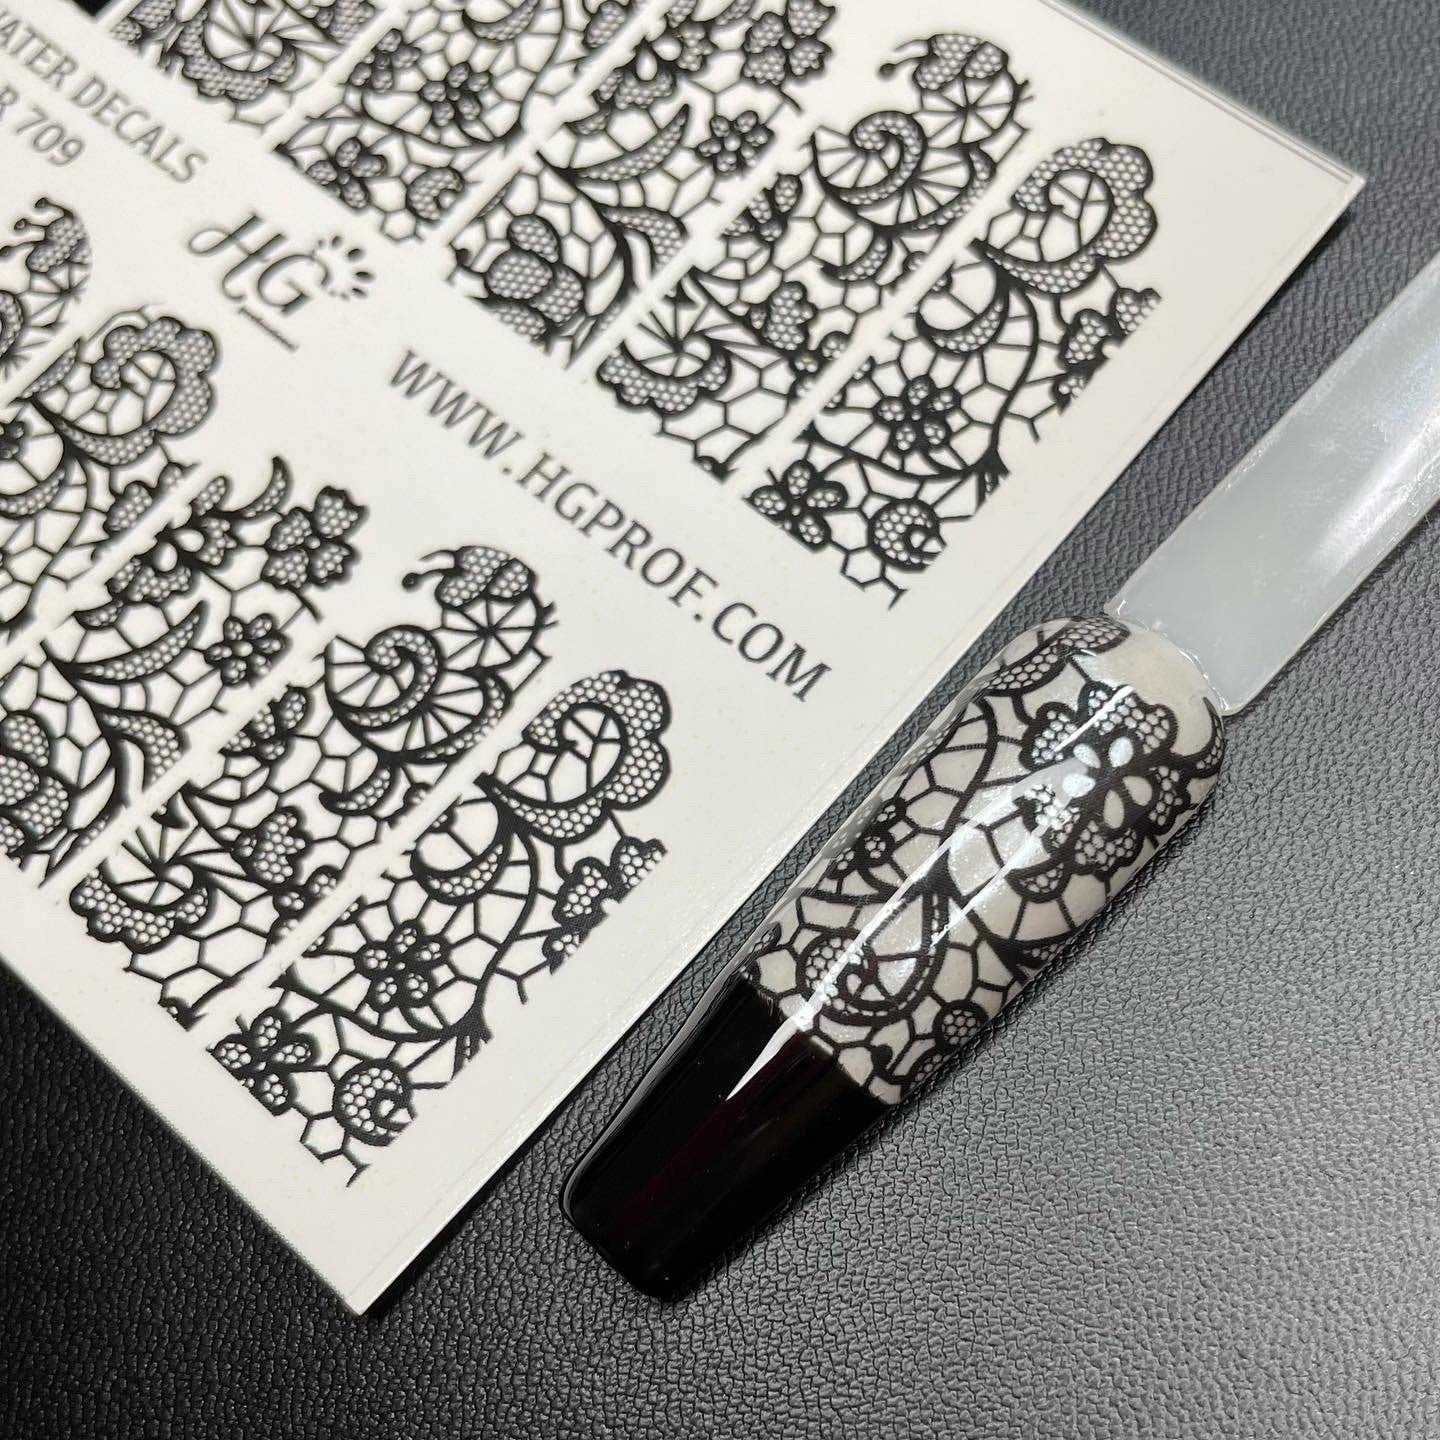 WATER DECALS
R 709
HG
WWW.HGPROF.COM